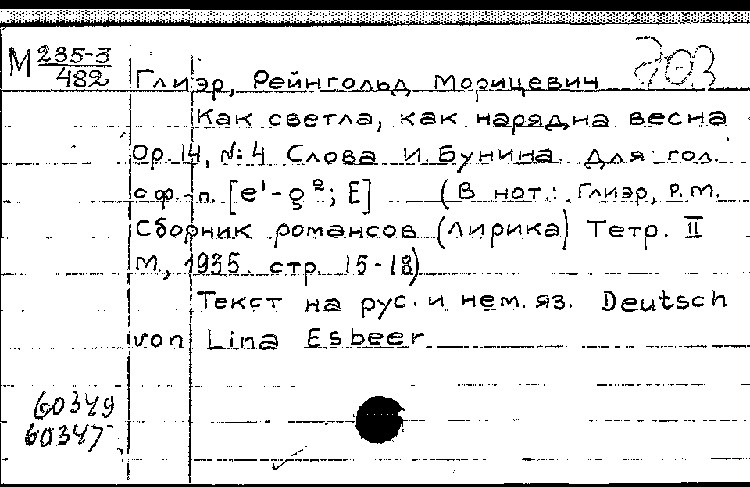 М 235-3
482
703
Глиэр, Рейнгольд Морицевич
Как светла, как нарядна весна
Ор. 14, №: 4 Слова И. Бунина. Для гол.
с ф.-п. [e¹-g²; E] (В нот.: Глиэр, Р.М.
Сборник романсов (лирика) Тетр. II
М., 1935. стр. 15-18)
Текст на рус. и нем. яз. Deutsch
von Lina Esbeer
60349
60347